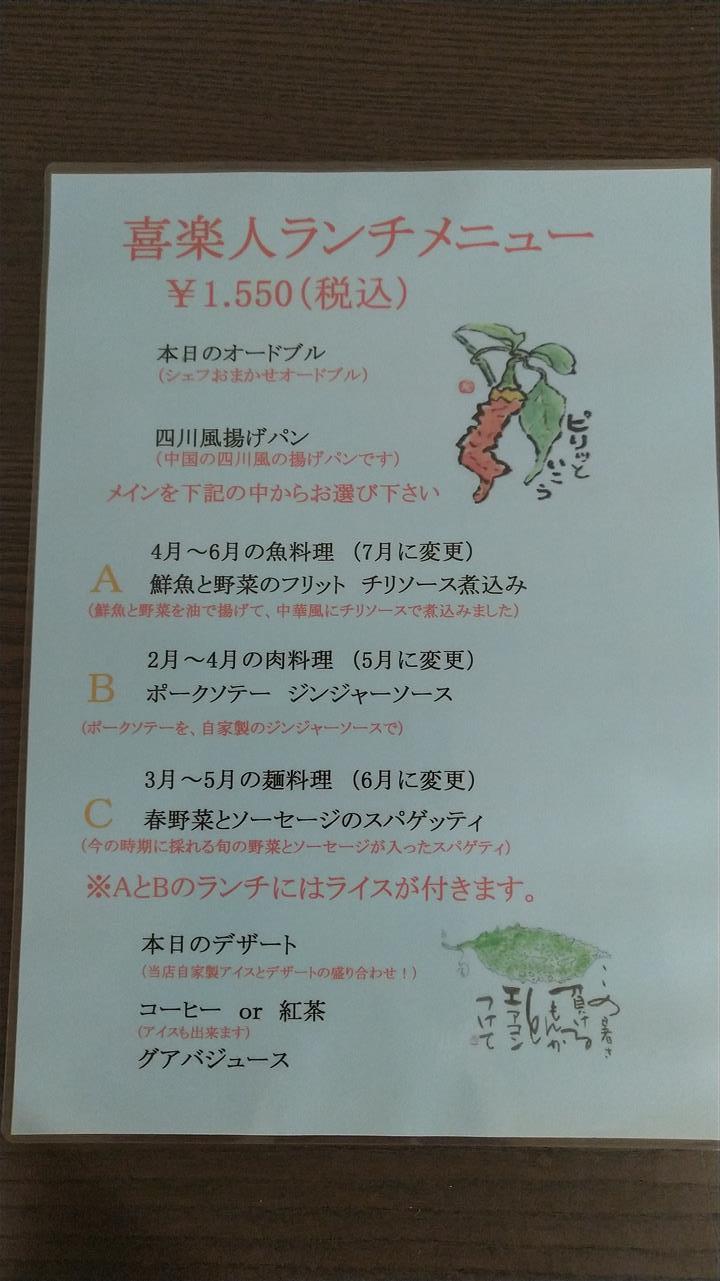 喜楽人ランチメニュー
￥1.550（税込）
本日のオードブル
（シェフおまかせオードブル）
四川風揚げパン
（中国の四川風の揚げパンです）
ピリッと
いこう
メインを下記の中からお選び下さい
4月～6月の魚料理 （7月に変更）
A 鮮魚と野菜のフリット チリソース煮込み
（鮮魚と野菜を油で揚げて、中華風にチリソースで煮込みました）
2月～4月の肉料理 （5月に変更）
B ポークソテー ジンジャーソース
（ポークソテーを、自家製のジンジャーソースで）
3月～5月の麺料理 （6月に変更）
C 春野菜とソーセージのスパゲッティ
（今の時期に採れる旬の野菜とソーセージが入ったスパゲティ）
※AとBのランチにはライスが付きます。
本日のデザート
（当店自家製アイスとデザートの盛り合わせ！）
コーヒー or 紅茶
（アイスも出来ます）
グアバジュース
この暑さ
負ける
もんか
エアコン
つけて